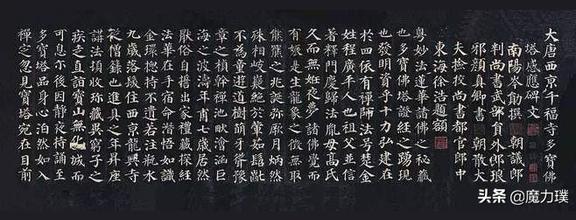 大唐西京千福寺多寶佛
塔感應碑文
南陽岑勛撰 朝議郎
判尚書武部員外郎琅
邪顏真卿書 朝散大
夫檢校尚書都官郎中
東海徐浩題額
粵妙法蓮華諸佛之秘藏
也多寶佛塔證經之踴現
也發明資乎十力弘建在
於四依有禪師法號楚金
姓程廣平人也祖父並信
著釋門慶歸法胤母高氏
久而無妊夜夢諸佛覺而
有娠是生龍象之徵無取
熊羆之兆誕彌厥月炳然
殊相岐嶷絕於葷茹髫齔
不為童遊道樹萌牙聳豫
章之楨幹禪池畎澮涵巨
海之波濤年甫七歲居然
厭俗自誓出家禮藏探經
法華在手宿命潛悟如識
金環總持不遺若注瓶水
九歲落髮住西京龍興寺
從僧籙也進具之年昇座
講法頓收珍藏異窮子之
疾走直詣寶山無化城而
可息爾後因靜夜持誦至
多寶塔品身心泊然如入
禪定忽見寶塔宛在目前
头条 @魔力璞